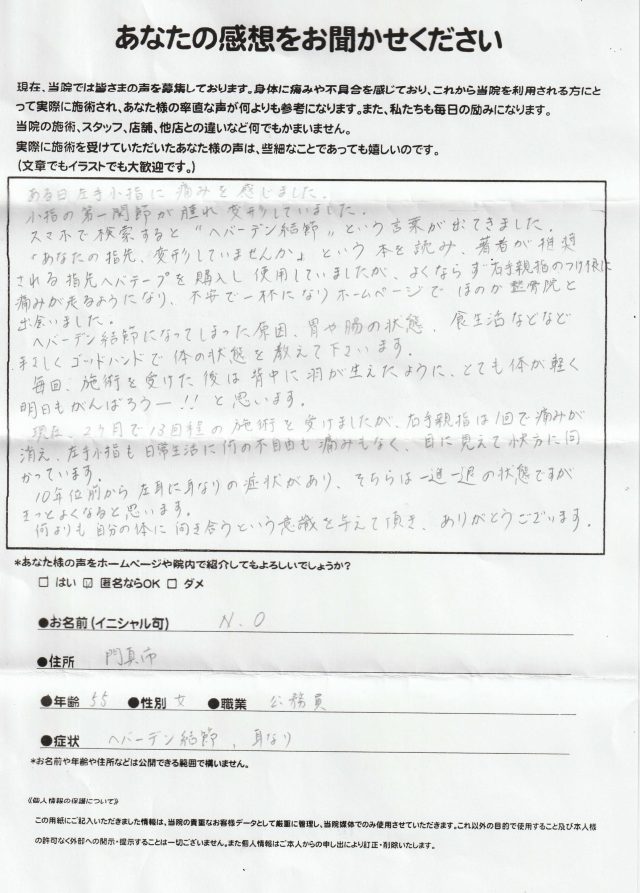 あなたの感想をお聞かせください
現在、当院では皆さまの声を募集しております。身体に痛みや不具合を感じており、これから当院を利用される方にと
って実際に施術され、あなた様の率直な声が何よりも参考になります。また、私たちも毎日の励みになります。
当院の施術、スタッフ、店舗、他店との違いなど何でもかまいません。
実際に施術を受けていただいたあなた様の声は、些細なことであっても嬉しいのです。
(文章でもイラストでも大歓迎です。)
ある日左手小指に痛みを感じました。
小指の第一関節が腫れ変形していました。
スマホで検索すると"ヘバーデン結節"という言葉が出てきました。
「あなたの指先、変形していませんか」という本を読み、著者が推奨
される指先ヘバテープを購入し使用していましたが、よくならず右手親指のつけ根に
痛みが走るようになり、不安で一杯になりホームページでほのか整骨院と
出会いました。
ヘバーデン結節になってしまった原因、胃や腸の状態、食生活などなど
まさしくゴッドハンドで体の状態を教えて下さいます。
毎回、施術を受けた後は背中に羽が生えたように、とても体が軽く
明日もがんばろうー!!と思います。
現在、2ヶ月で13回程の施術を受けましたが、右手親指は1回で痛みが
消え、左手小指も日常生活に何の不自由も痛みもなく、目に見えて快方に向
かっています。
10年位前から左耳に耳なりの症状があり、そちらは一進一退の状態ですが
きっとよくなると思います。
何よりも自分の体に向き合うという意識を与えて頂き、ありがとうございます。
*あなた様の声をホームページや院内で紹介してもよろしいでしょうか?
□ はい ☑ 匿名ならOK □ ダメ
●お名前(イニシャル可) N.O
●住所 門真市
●年齢 55 ●性別 女 ●職業 公務員
●症状 ヘバーデン結節、耳なり
*お名前や年齢や住所などは公開できる範囲で構いません。
《個人情報の保護について》
この用紙にご記入いただきました情報は、当院の貴重なお客様データとして厳重に管理し、当院媒体でのみ使用させていただきます。これ以外の目的で使用すること及び本人様
の許可なく外部への開示・提示することは一切ございません。また個人情報はご本人からの申し出により訂正・削除いたします。